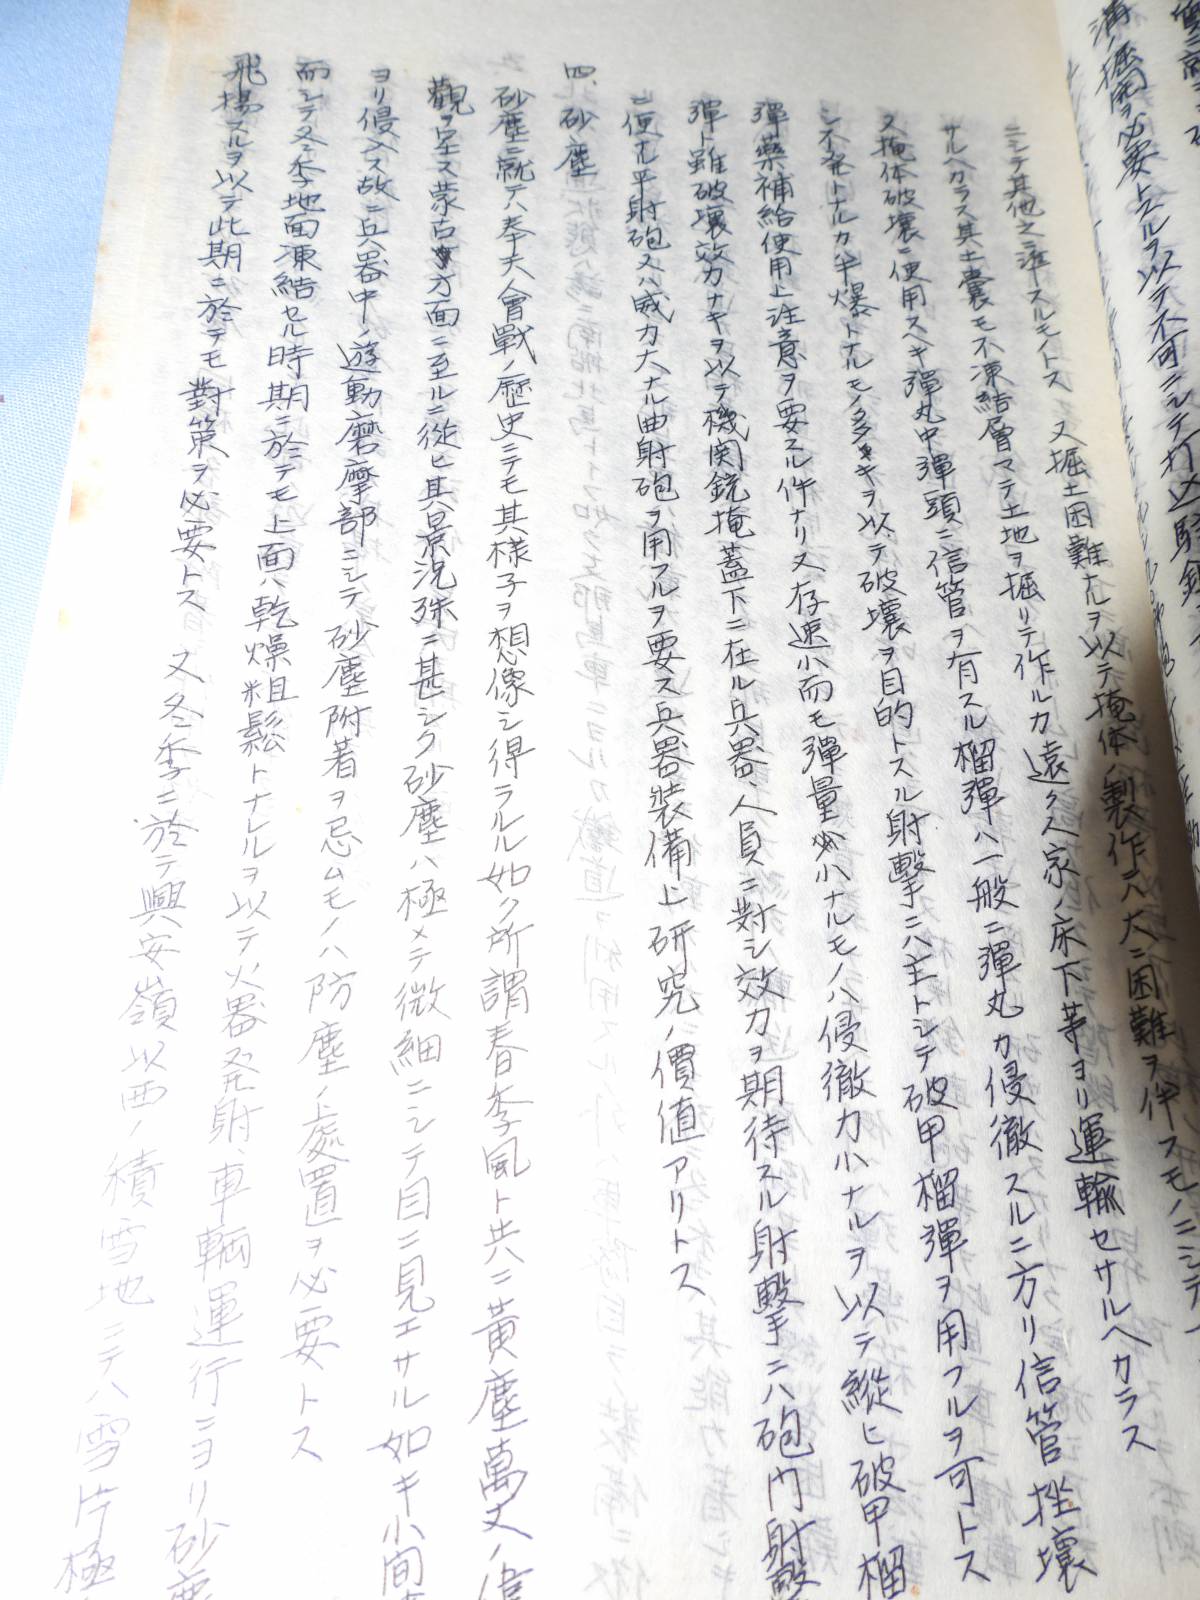 溝ノ掘開ヲ必要トスルヲ以テ不可ニシテ打込駐鋤
ニシテ其他之ニ準スルモノトス 又掘土困難ナルヲ以テ掩体ノ製作ハ大ニ困難ヲ伴スモノニシテ
サルヘカラス其土嚢モ不凍結層マテ土地ヲ掘リテ作ルカ遠ク人家ノ床下等ヨリ運輸セサルヘカラス
ス掩体破壊ニ使用スヘキ彈丸中彈頭ニ信管ヲ有スル榴彈ハ一般ニ彈丸カ侵徹スルニ方リ信管挫壞
シ不発トナルカ半爆トナルモノ多キヲ以テ破壊ヲ目的トスル射擊ニハ主トシテ破甲榴彈ヲ用フルヲ可トス
彈藥補給使用上注意ヲ要スル件ナリ又存速小而モ彈量小ナルモノハ侵徹力小ナルヲ以テ縱ヒ破甲榴
彈ト雖破壞效力ナキヲ以テ機関銃掩蓋下ニ在ル兵器、人員ニ對シ效力ヲ期待スル射擊ニハ砲門射擊
ニ便ナル平射砲又ハ威力大ナル曲射砲ヲ用フルヲ要ス兵器裝備上研究ノ價値アリトス
四、砂塵
砂塵ニ就テハ奉天會戰ノ歷史ニテモ其樣子ヲ想像シ得ラルル如ク所謂春季風ト共ニ黃塵萬丈ノ偉
觀ヲ呈ス蒙古方面ニ至ルニ從ヒ其景況殊ニ甚シク砂塵ハ極メテ微細ニシテ目ニ見エサル如キ小間
ヨリ侵入ス故ニ兵器中ノ遊動磨摩部ニシテ砂塵附着ヲ忌ムモノハ防塵ノ處置ヲ必要トス
而シテ冬季地面凍結セル時期ニ於テモ上面ハ乾燥粗鬆トナレルヲ以テ火器発射、車輌運行ニヨリ砂塵
飛揚スルヲ以テ此期ニ於テモ對策ヲ必要トス 又冬季ニ於テ興安嶺以西ノ積雪地ニテハ雪片極